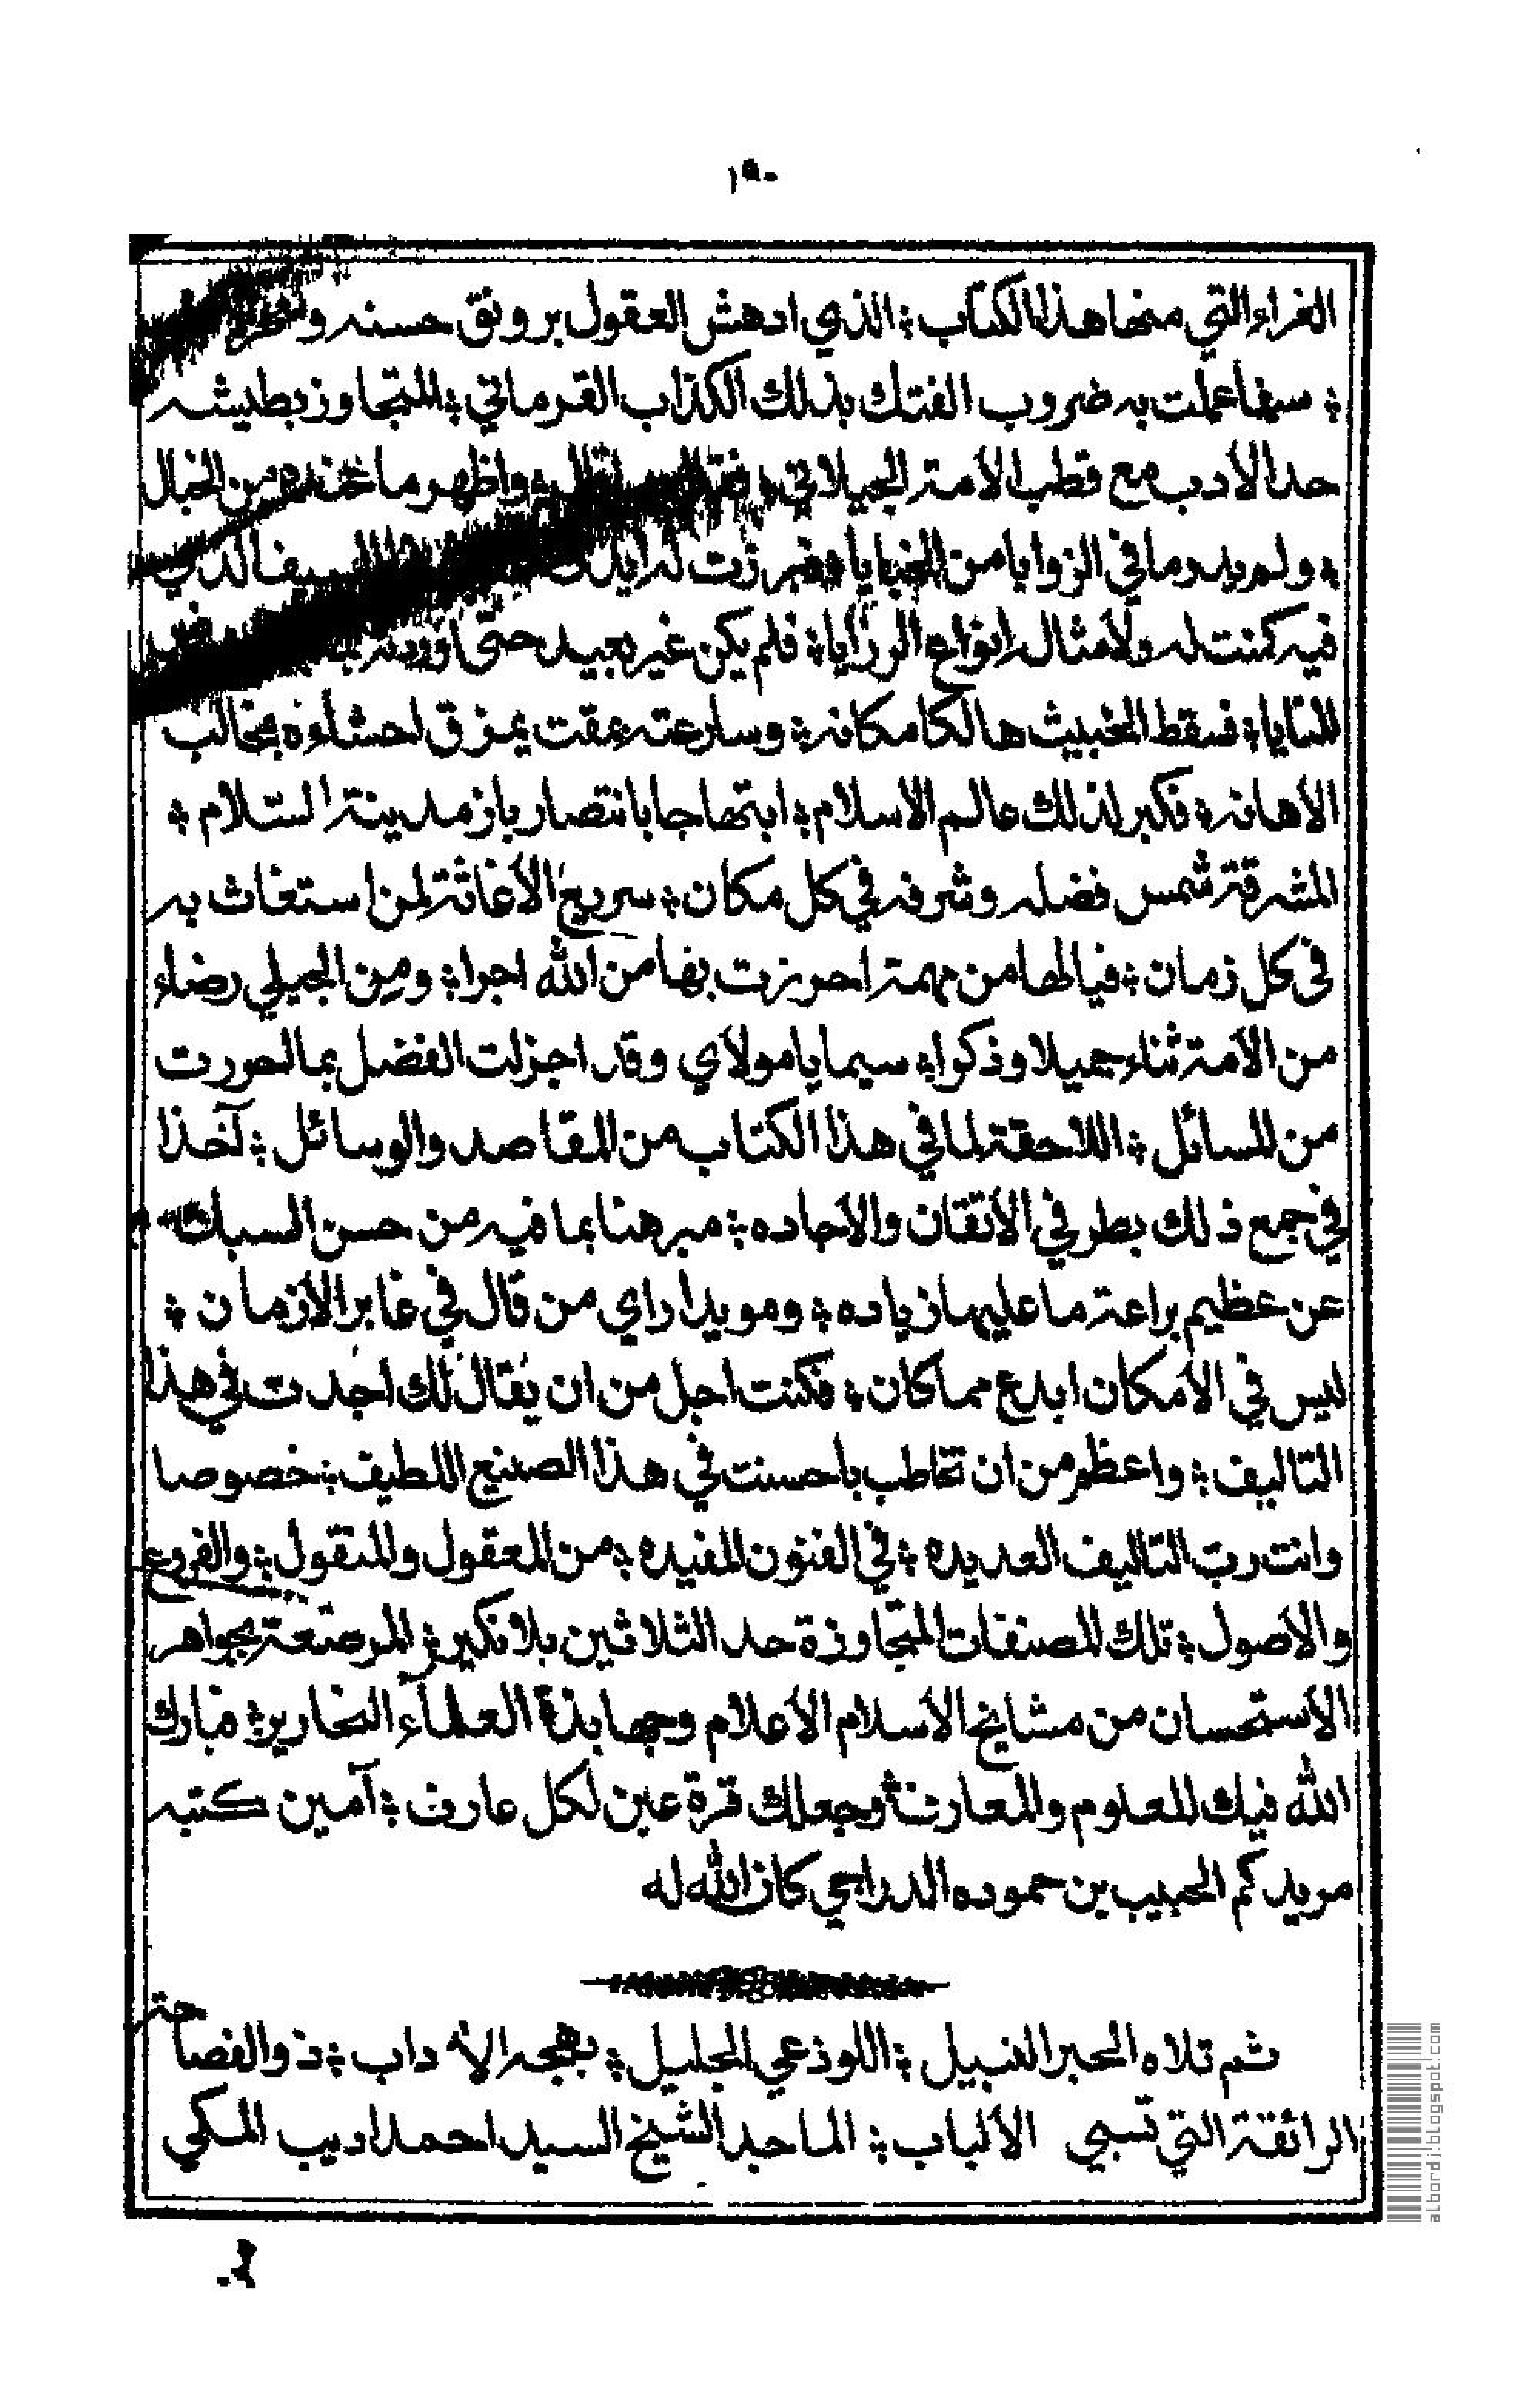 ١٩٠
الغراء التي منها هذا الكتاب ؛ الذي ادهش العقول برونق حسنه
؛ سيما عملت به ضروب الفتك بذلك الكذاب القرماني ؛ المتجاوز بطيشه
حد الأدب مع قطب الأمة الجيلاتي ؛ واظهر ما عنده من الخبال
؛ ولم يدر ما في الزوايا من الخبايا ؛ فبرزت له السيف الذي
فيه كمنت له ولأمثاله انواع الرزايا ؛ فلم يكن غير بعيد حتى اوردته
المنايا ؛ فسقط الخبيث هالكا مكانه ؛ وسارعته بمقت يمزق احشاءه بمخالب
الأهانه ؛ فكبر لذلك عالم الاسلام ؛ ابتهاجا بانتصار باز مدينة السّلام ؛
المشرقة شمس فضله وشرفه في كل مكان ؛ سريع الأغاثة لمن استغاث به
في كل زمان ؛ فيالها من مهمة احرزت بها من الله اجرا ؛ ومن الجيلي رضاء
من الأمة ثناء جميلا وذكرا ؛ سيما يا مولاي وقد اجزلت الفضل بما حررت
من المسائل ؛ اللاحقة لما في هذا الكتاب من المقاصد والوسائل ؛ آخذا
في جمع ذلك بطرفي الأتقان والأجاده ؛ مبرهنا بما فيه من حسن السبك
عن عظيم براعة ما عليها زياده ؛ ومويدا راي من قال في غابر الأزمان ؛
ليس في الأمكان ابدع مما كان ؛ فكنت اجل من ان يُقال لك اجدت في هذا
التاليف ؛ واعظم من ان تخاطب باحسنت في هذا الصنيع اللطيف ؛ خصوصا
وانت ربّ التاليف العديده ؛ في الفنون المفيده ؛ من المعقول والمنقول ؛ والفروع
والأصول ؛ تلك المصنفات المتجاوزة حد الثلاثين بلا نكير ؛ المرصّعة بجواهر
الأستحسان من مشايخ الأسلام الأعلام وجهابذة العلمآء النحارير ؛ فبارك
الله فيك للعلوم والمعارف وجعلك قرة عين لكل عارف ؛ آمين كتبه
مريدكم الحبيب بن حموده الدراجي كان الله له
ثم تلاه الحبر النبيل ؛ اللوذعي الجليل ؛ بهجة الأداب ؛ ذو الفصاحة
الرائقة التي تسبي الألباب ؛ الماجد الشيخ السيد احمد اديب المكي
albordj.blogspot.com